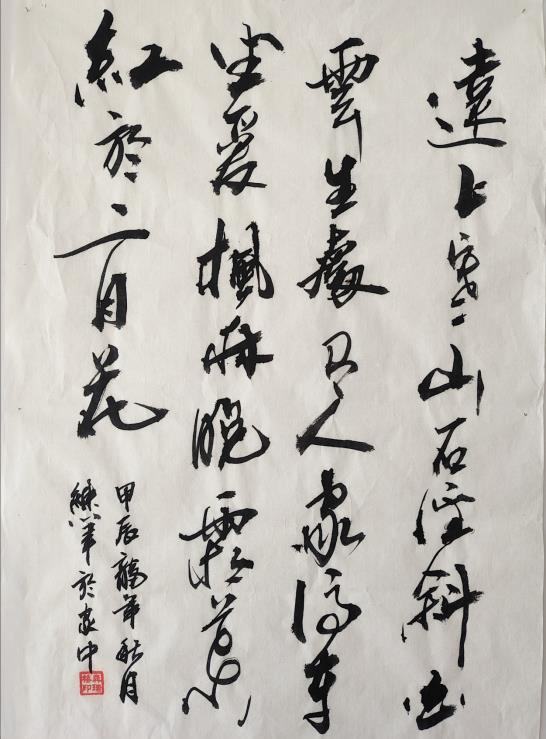 遠上寒山石徑斜白
雲生處有人家停車
坐愛楓林晚霜葉
紅於二月花
甲辰龍年秋月
筆於家中